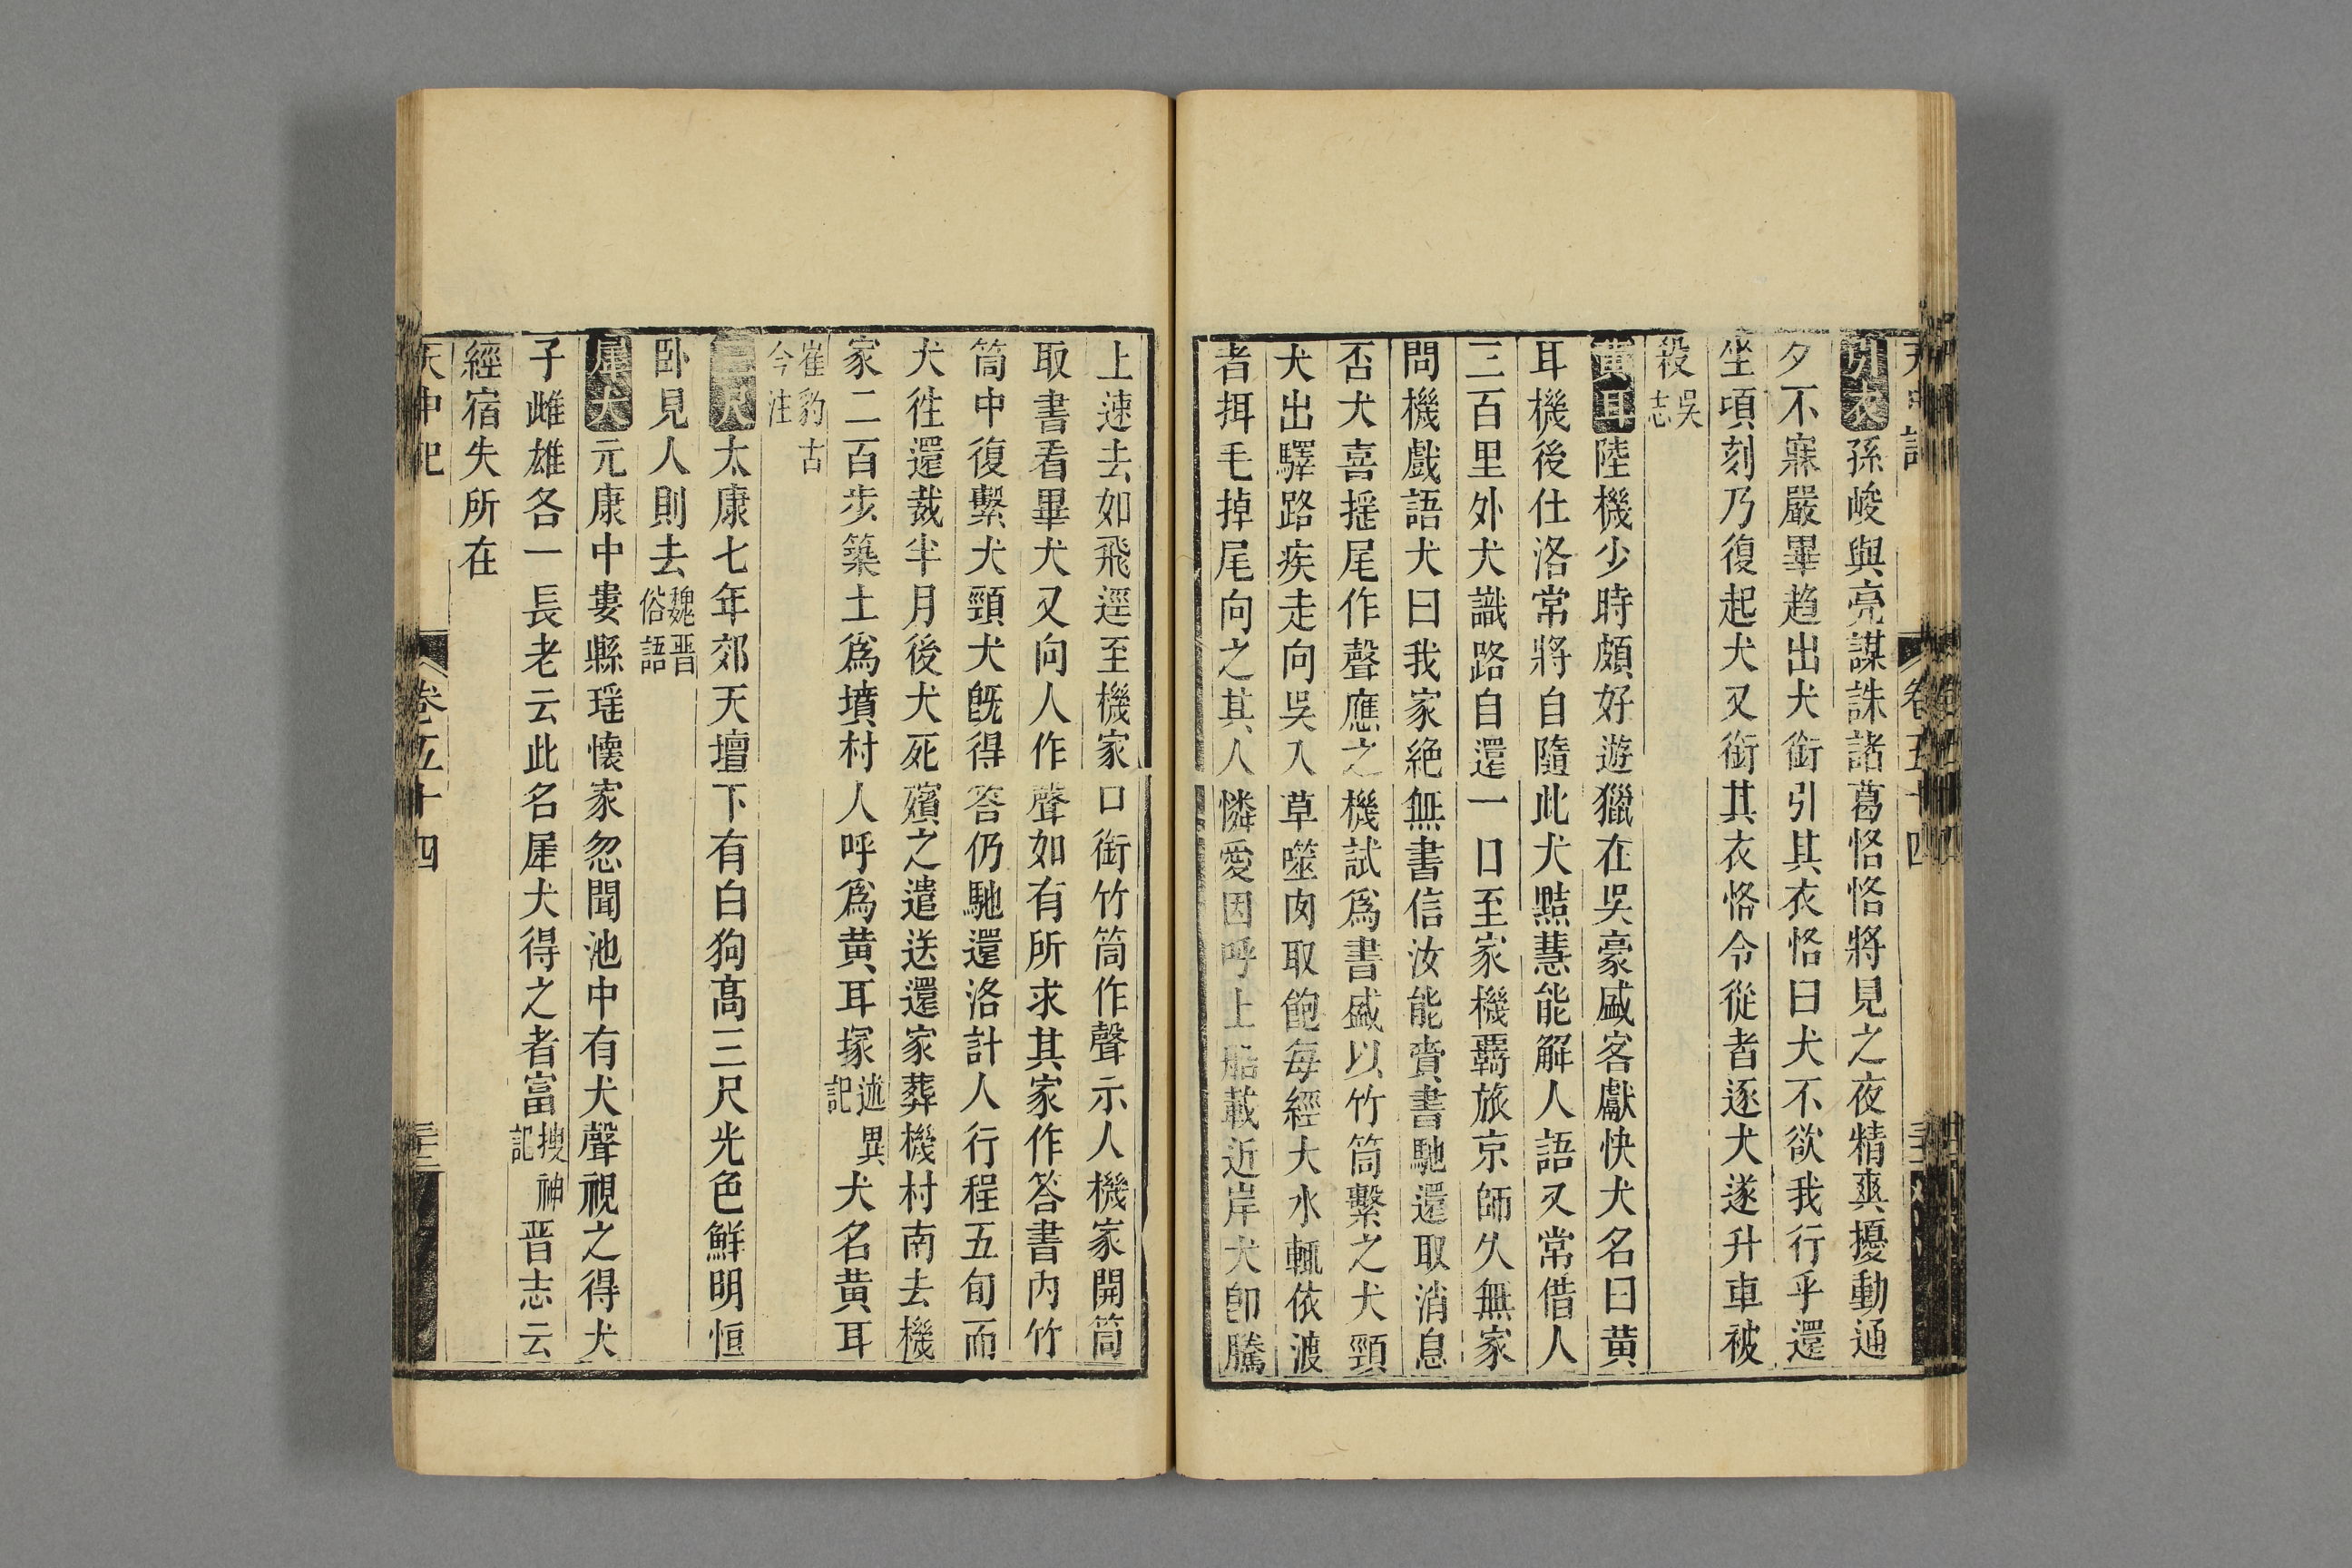 天中記 卷五十四
引衣孫峻與亮謀誅諸葛恪恪將見之夜精爽擾動通
夕不寐嚴畢趨出犬銜引其衣恪曰犬不欲我行乎還
坐頃刻乃復起犬又銜其衣恪令從者逐犬遂升車被
殺吳志
黃耳陸機少時頗好遊獵在吳豪盛客獻快犬名曰黃
耳機後仕洛常將自隨此犬黠慧能解人語又常借人
三百里外犬識路自還一日至家機羇旅京師久無家
問機戲語犬曰我家絕無書信汝能賫書馳還取消息
否犬喜搖尾作聲應之機試爲書盛以竹筒繫之犬頸
犬出驛路疾走向吳入草噬肉取飽每經大水輒依渡
者揖毛掉尾向之其人憐愛因呼上船載近岸犬卽騰
上速去如飛逕至機家口銜竹筒作聲示人機家開筒
取書看畢犬又向人作聲如有所求其家作答書內竹
筒中復繫犬頸犬旣得答仍馳還洛計人行程五旬而
犬徃還裁半月後犬死殯之遣送還家葬機村南去機
家二百步築土爲墳村人呼爲黃耳塚述異記犬名黃耳
崔豹古今注
三尺太康七年郊天壇下有白狗高三尺光色鮮明恒
卧見人則去魏晋俗語
犀犬元康中婁縣瑶懷家忽聞池中有犬聲視之得犬
子雌雄各一長老云此名犀犬得之者富搜神記晋志云
經宿失所在
天中記 卷五十四 三十三